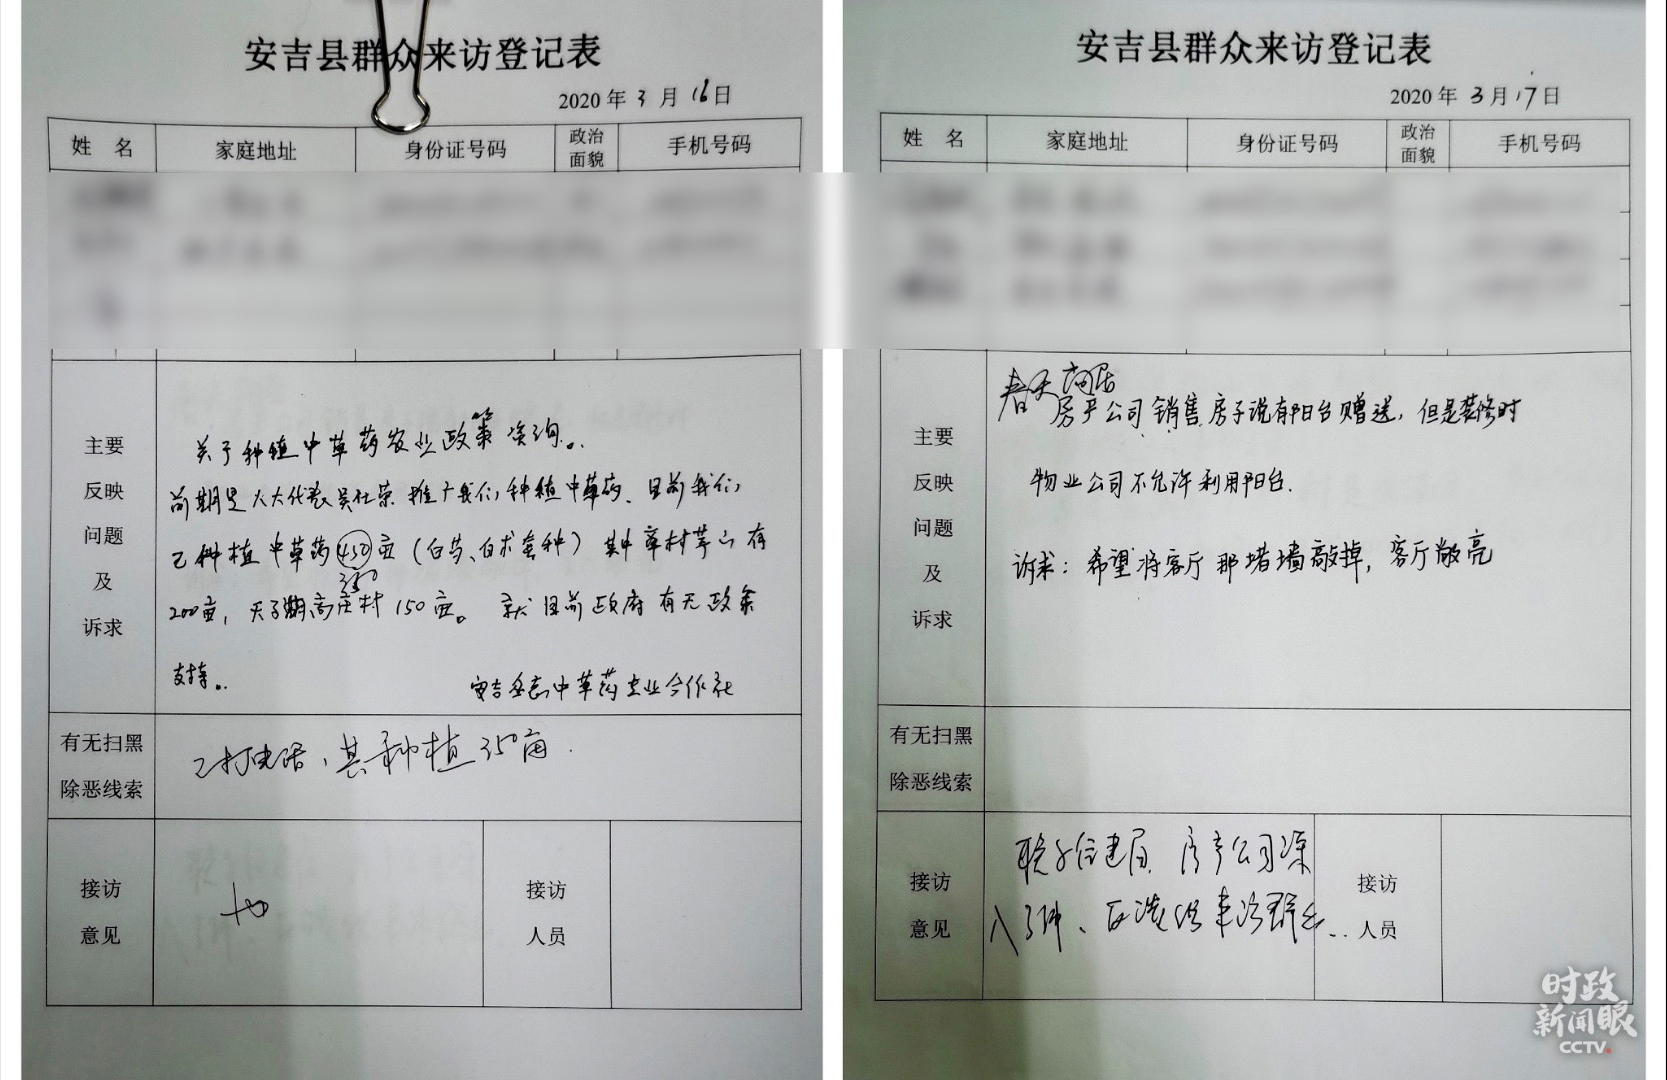 安吉县群众来访登记表
2020年3月16日
姓 名 家庭地址 身份证号码 政治面貌 手机号码
主要反映问题及诉求
关于种植中草药农业政策咨询。
前期是人大代表吴仕荣推广我们种植中草药、目前我们
已种植中草药450亩(白芍、白术套种)其中 有
350
200亩,天子湖高庄村150亩。就目前政府有无政策
支持。
安吉 中草药专业合作社
有无扫黑除恶线索
已打电话、其种植350亩.
接访意见
接访人员
安吉县群众来访登记表
2020年3月17日
姓 名 家庭地址 身份证号码 政治面貌 手机号码
主要反映问题及诉求
春天
房产公司销售房子说有阳台赠送,但是装修时
物业公司不允许利用阳台.
诉求:希望将客厅那堵墙敲掉,客厅敞亮
有无扫黑除恶线索
接访意见
联系住建局、房产公司深
入了解、反馈给来访群众..
接访人员
时政
新闻眼
CCTV.